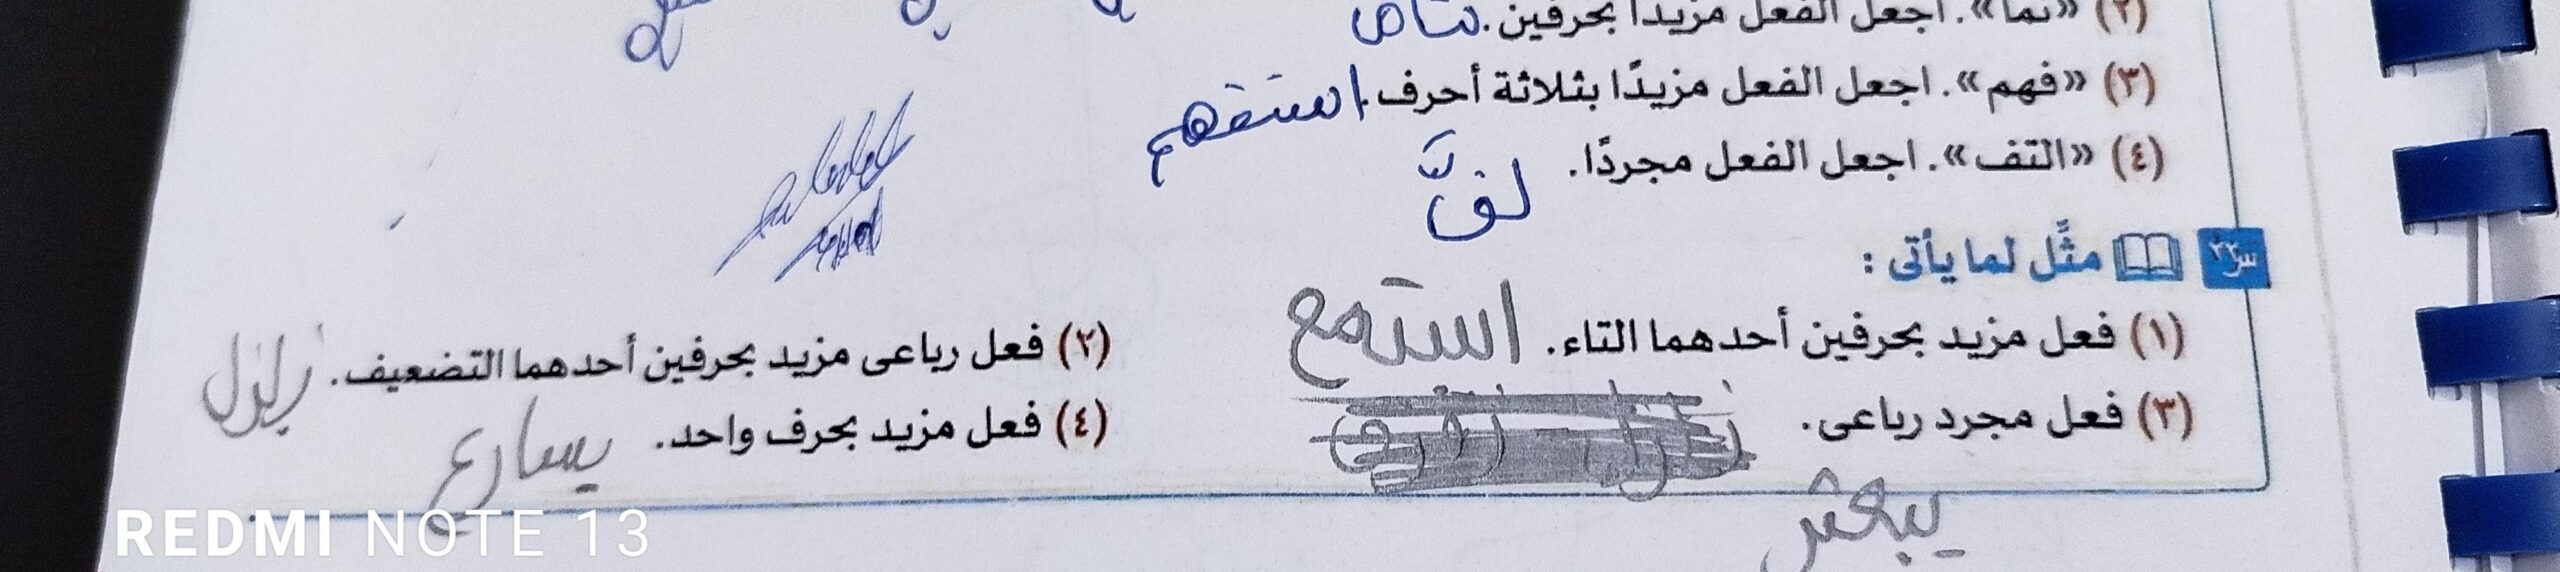 (٢) «نما». اجعل الفعل مزيدًا بحرفين.
(٣) «فهم». اجعل الفعل مزيدًا بثلاثة أحرف. استفهم
(٤) «التف». اجعل الفعل مجردًا. لفَّ
س٢٢ مثِّل لما يأتى :
(١) فعل مزيد بحرفين أحدهما التاء. استمع
(٢) فعل رباعى مزيد بحرفين أحدهما التضعيف. زلزل
(٣) فعل مجرد رباعى. يبعثر
(٤) فعل مزيد بحرف واحد. يسارع
REDMI NOTE 13